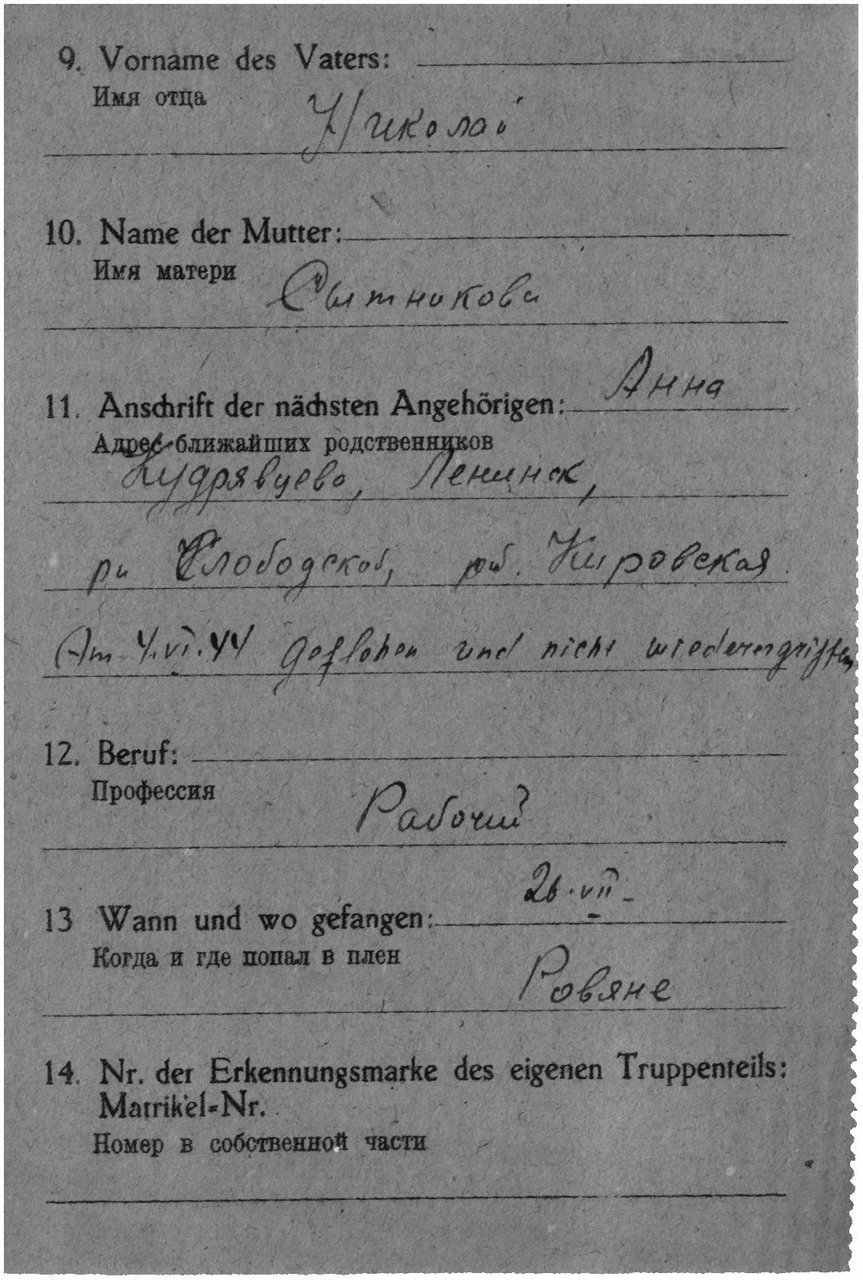 9. Vorname des Vaters:
Имя отца
Николай
10. Name der Mutter:
Имя матери
Сытникова
11. Anschrift der nächsten Angehörigen: Анна
Адрес ближайших родственников
Кудрявцева, Ленинск,
рн Слободской, Кировская
Am 4.VI.44 geflohen und nicht wiederergriffen
12. Beruf:
Профессия
Рабочий
26.VII-
13 Wann und wo gefangen:
Когда и где попал в плен
Ровяне
14. Nr. der Erkennungsmarke des eigenen Truppenteils:
Matrikel-Nr.
Номер в собственной части